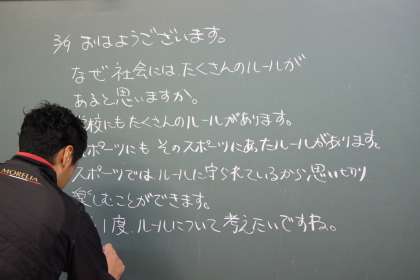 3/9 おはようございます。
なぜ社会には、たくさんのルールが
あると思いますか。
学校にもたくさんのルールがあります。
スポーツにもそのスポーツにあったルールがあります。
スポーツではルールに守られているから思い切り
楽しむことができます。
1度、ルールについて考えたいですね。
MORELIA